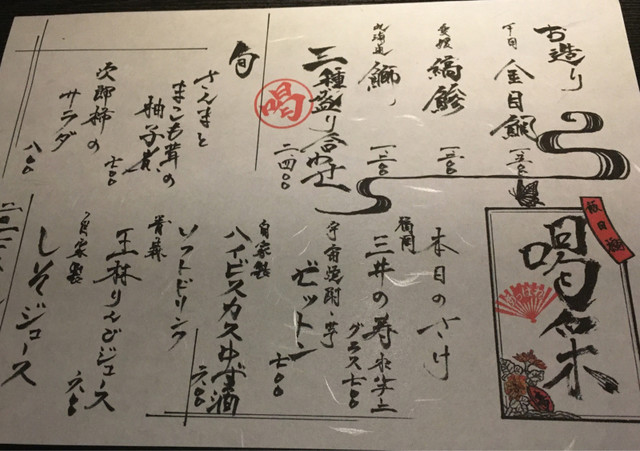 お造り
下田 金目鯛 一三〇〇
愛媛 縞鯵
北海道 鰤
三種盛り合わせ 二四〇〇
喝
旬
さんまと
まこも茸の
柚子煮 七〇〇
次郎柿の
サラダ 八〇〇
喝采
本日のさけ
福岡
三井の寿 純米吟上
グラス七〇〇
宇宙焼酎・芋
ゼットン 七〇〇
自家製
ハイビスカスゆず酒 六〇〇
ソフトドリンク
青森
王林りんごジュース 六〇〇
自家製
しそジュース